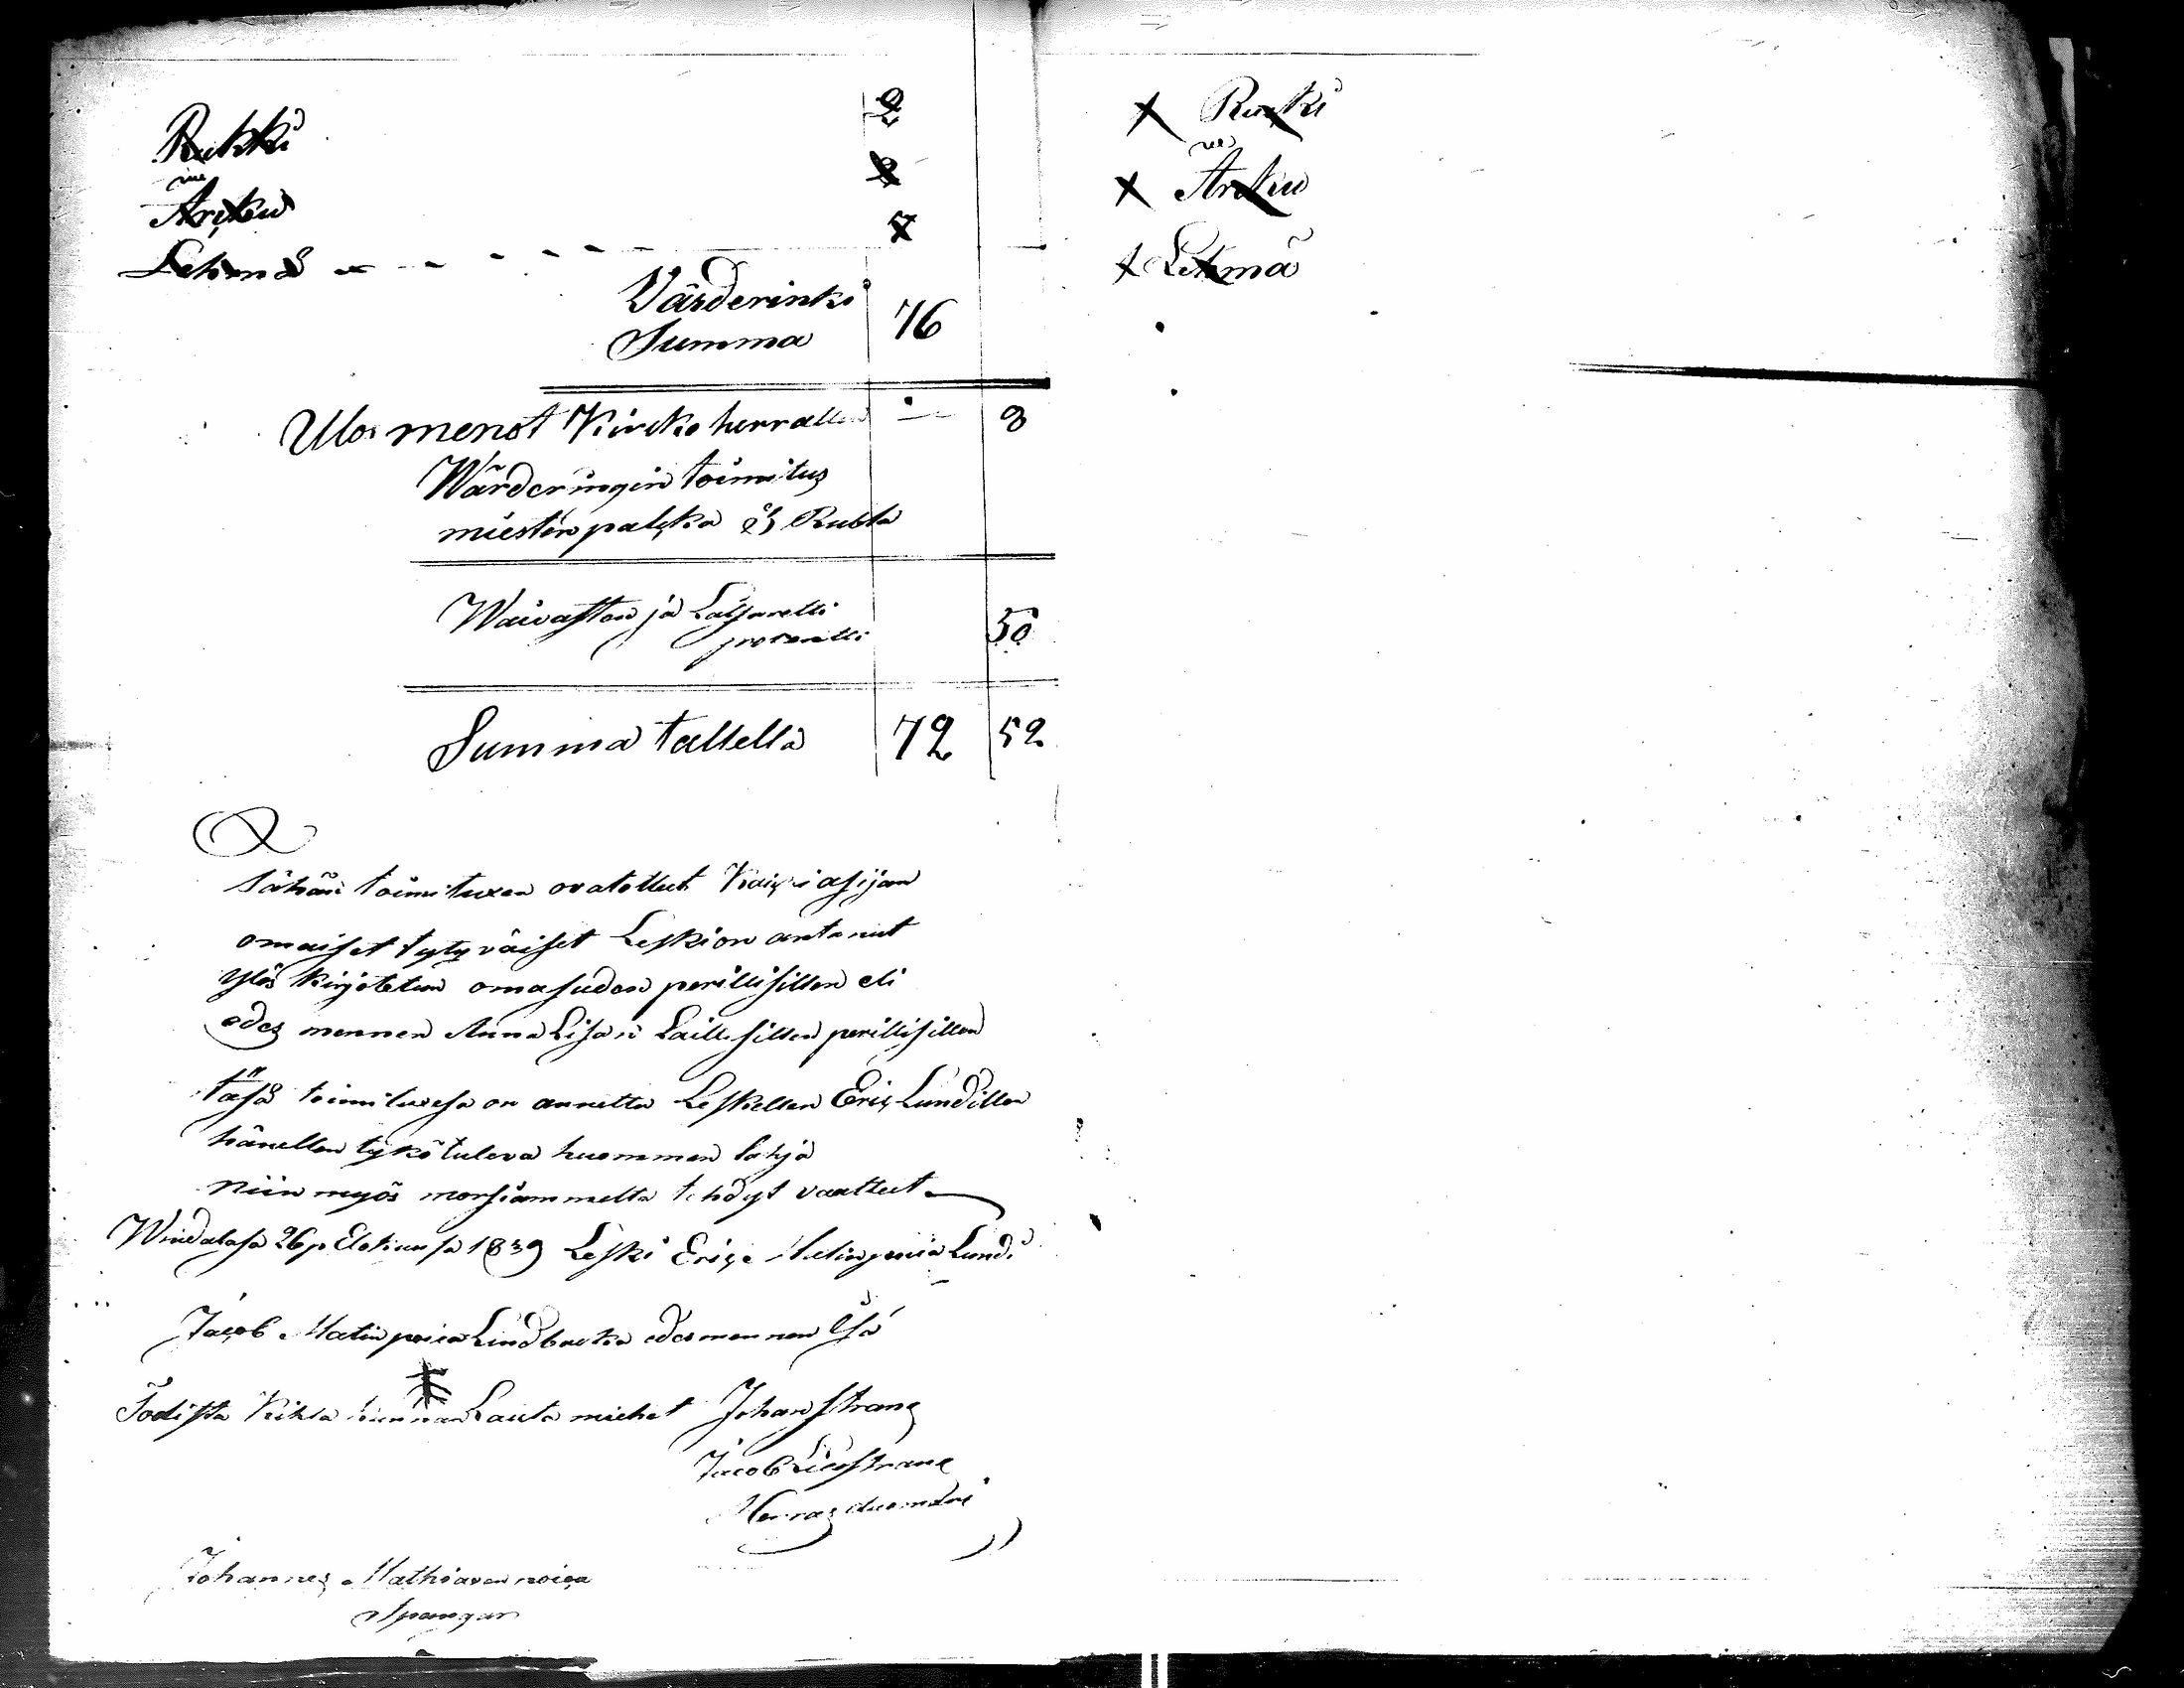 Rukki 2
Arcku 2
Lehmä 7
Värderinki
Summa 76
Ulos menot Kircko herrallen 8
Wärderingin toimitus
miesten palcka 2½ Rubla
Waivasten ja Latsaretti
prosentti 50
Summa tallella 72 52
tähän toimituxen ovatollut Kaicki asijan
omaiset tytyväiset Leski on antanut
ylös kirjotetun omasuden perillisillen eli
edes mennen Anna Lisan Laillisillen perillisillen
täsä toimituxesa on annettu Leskellen Eric Lundillen
hänellen tykö tuleva huommen lahja
niin myös morsiammelta tehdyt vaatteet
Windalasa 26 p Elokuusa 1839 Leski Eric Matinpoica Lundi
Jacob Matinpoica Lindbacka edesmennen Isä
Todista Kihla kunnan Lauta miehet Johan Strang
Jacob Liustrang
Herras duomari
Johannes Mathiaxen poica
Spangar
X Rucki
X Arcku
X Lehmä